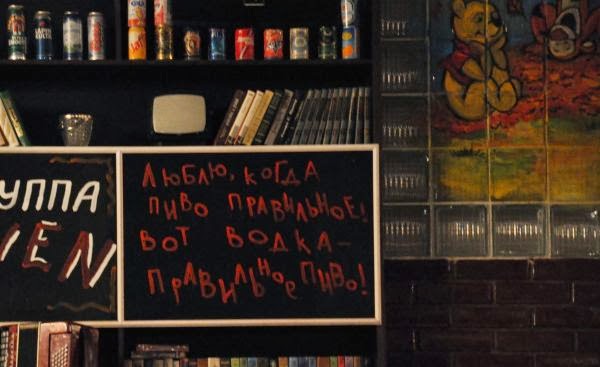 УППА
IEN
Люблю, когда
пиво правильное!
Вот водка-
правильное пиво!